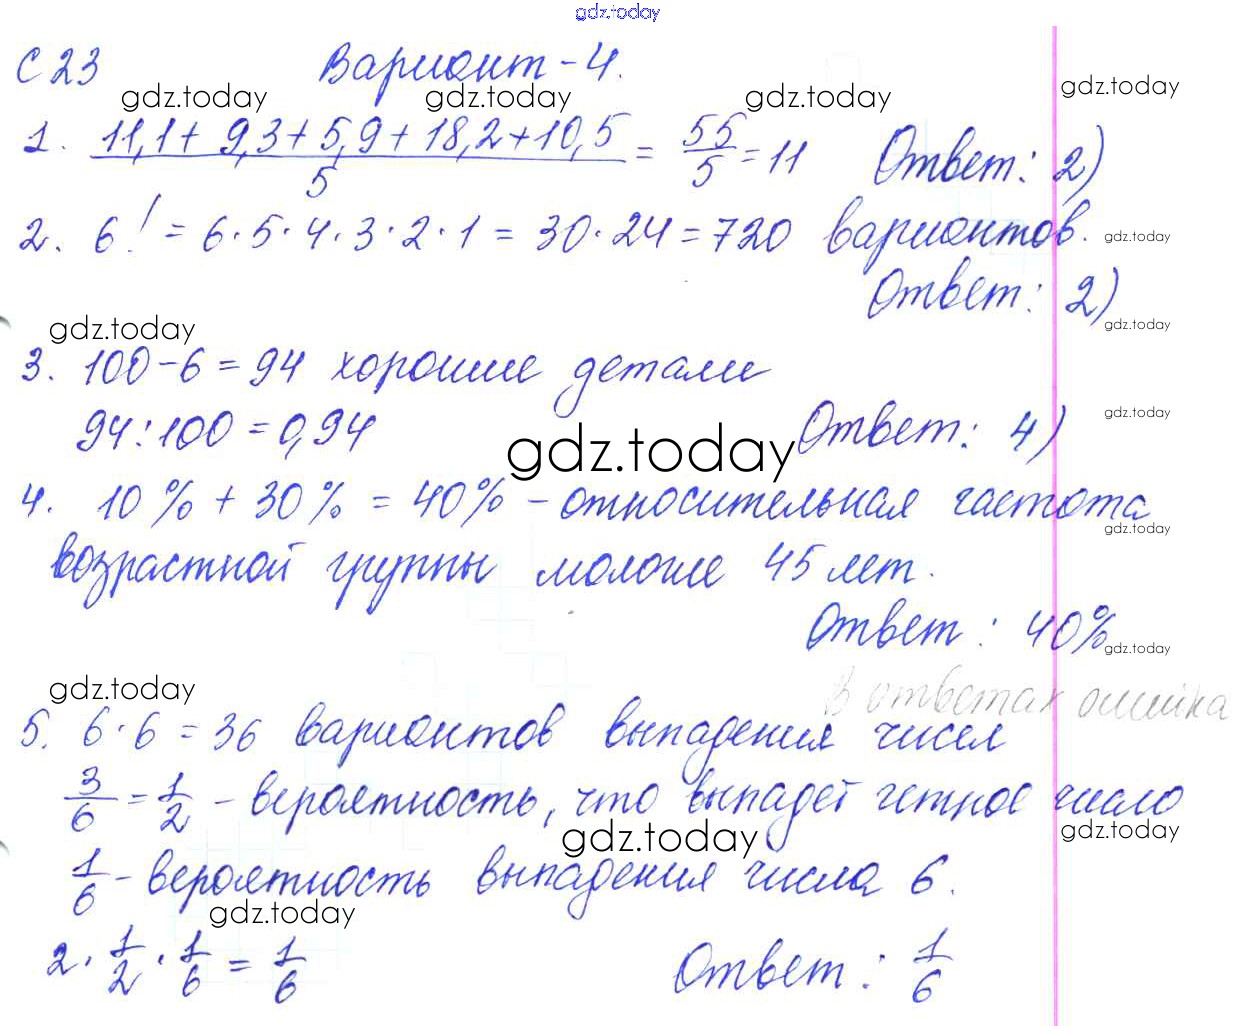 gdz.today
С 23 Вариант - 4.
gdz.today gdz.today gdz.today gdz.today
1. (11,1 + 9,3 + 5,9 + 18,2 + 10,5)/5 = 55/5 = 11 Ответ: 2)
2. 6! = 6·5·4·3·2·1 = 30·24 = 720 вариантов. gdz.today
Ответ: 2)
gdz.today gdz.today
3. 100 - 6 = 94 хорошие детали
94 : 100 = 0,94 Ответ: 4) gdz.today
gdz.today
4. 10% + 30% = 40% - относительная частота
gdz.today
возрастной группы моложе 45 лет.
Ответ: 40% gdz.today
gdz.today В ответах ошибка
5. 6·6 = 36 вариантов выпадения чисел
3/6 = 1/2 - вероятность, что выпадет четное число
gdz.today gdz.today
1/6 - вероятность выпадения числа 6.
gdz.today
2 · 1/2 · 1/6 = 1/6 Ответ: 1/6